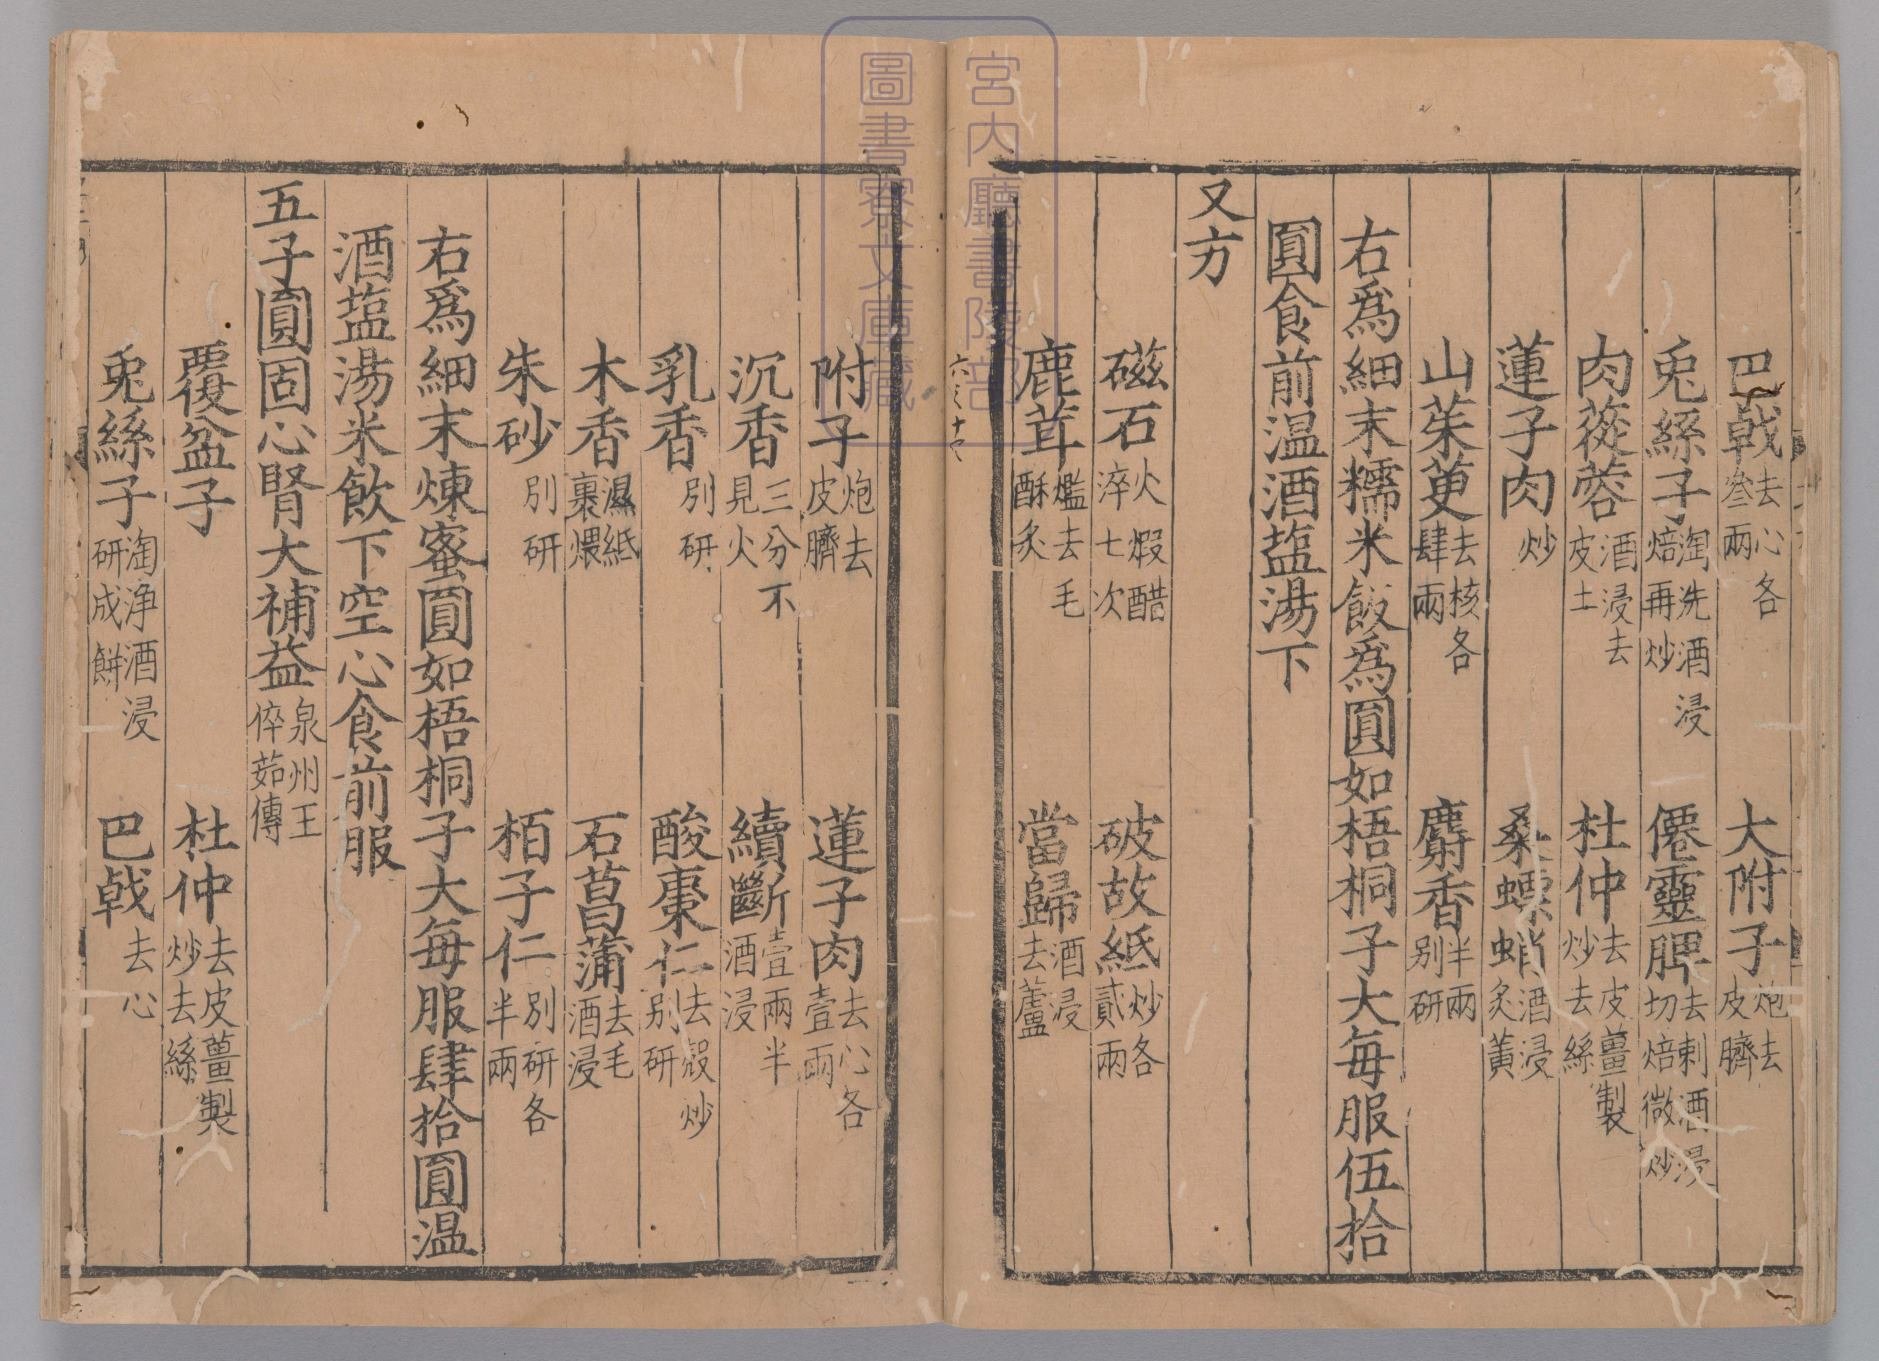 巴戟去心各叁兩　大附子炮去皮臍
兎絲子淘洗酒浸焙再炒　僊靈脾去刺酒浸切焙微炒
肉蓯蓉酒浸去皮土　杜仲去皮薑製炒去絲
蓮子肉炒　桑螵蛸酒浸炙黃
山茱萸去核各肆兩　麝香半兩別研
右爲細末糯米飯爲圓如梧桐子大每服伍拾
圓食前温酒塩湯下
又方
磁石火煆醋淬七次　破故紙炒各貳兩
鹿茸爁去毛酥炙　當歸酒浸去蘆
附子炮去皮臍　蓮子肉去心各壹兩
沉香三分不見火　續斷壹兩半酒浸
乳香別研　酸棗仁去殼炒別研
木香濕紙裹煨　石菖蒲去毛酒浸
朱砂別研　栢子仁別研各半兩
右爲細末煉蜜圓如梧桐子大每服肆拾圓温
酒塩湯米飲下空心食前服
五子圓固心腎大補益泉州王倅茹傳
覆盆子　杜仲去皮薑製炒去絲
兎絲子淘净酒浸研成餅　巴戟去心
宮内廳書陵部
圖書寮文庫藏